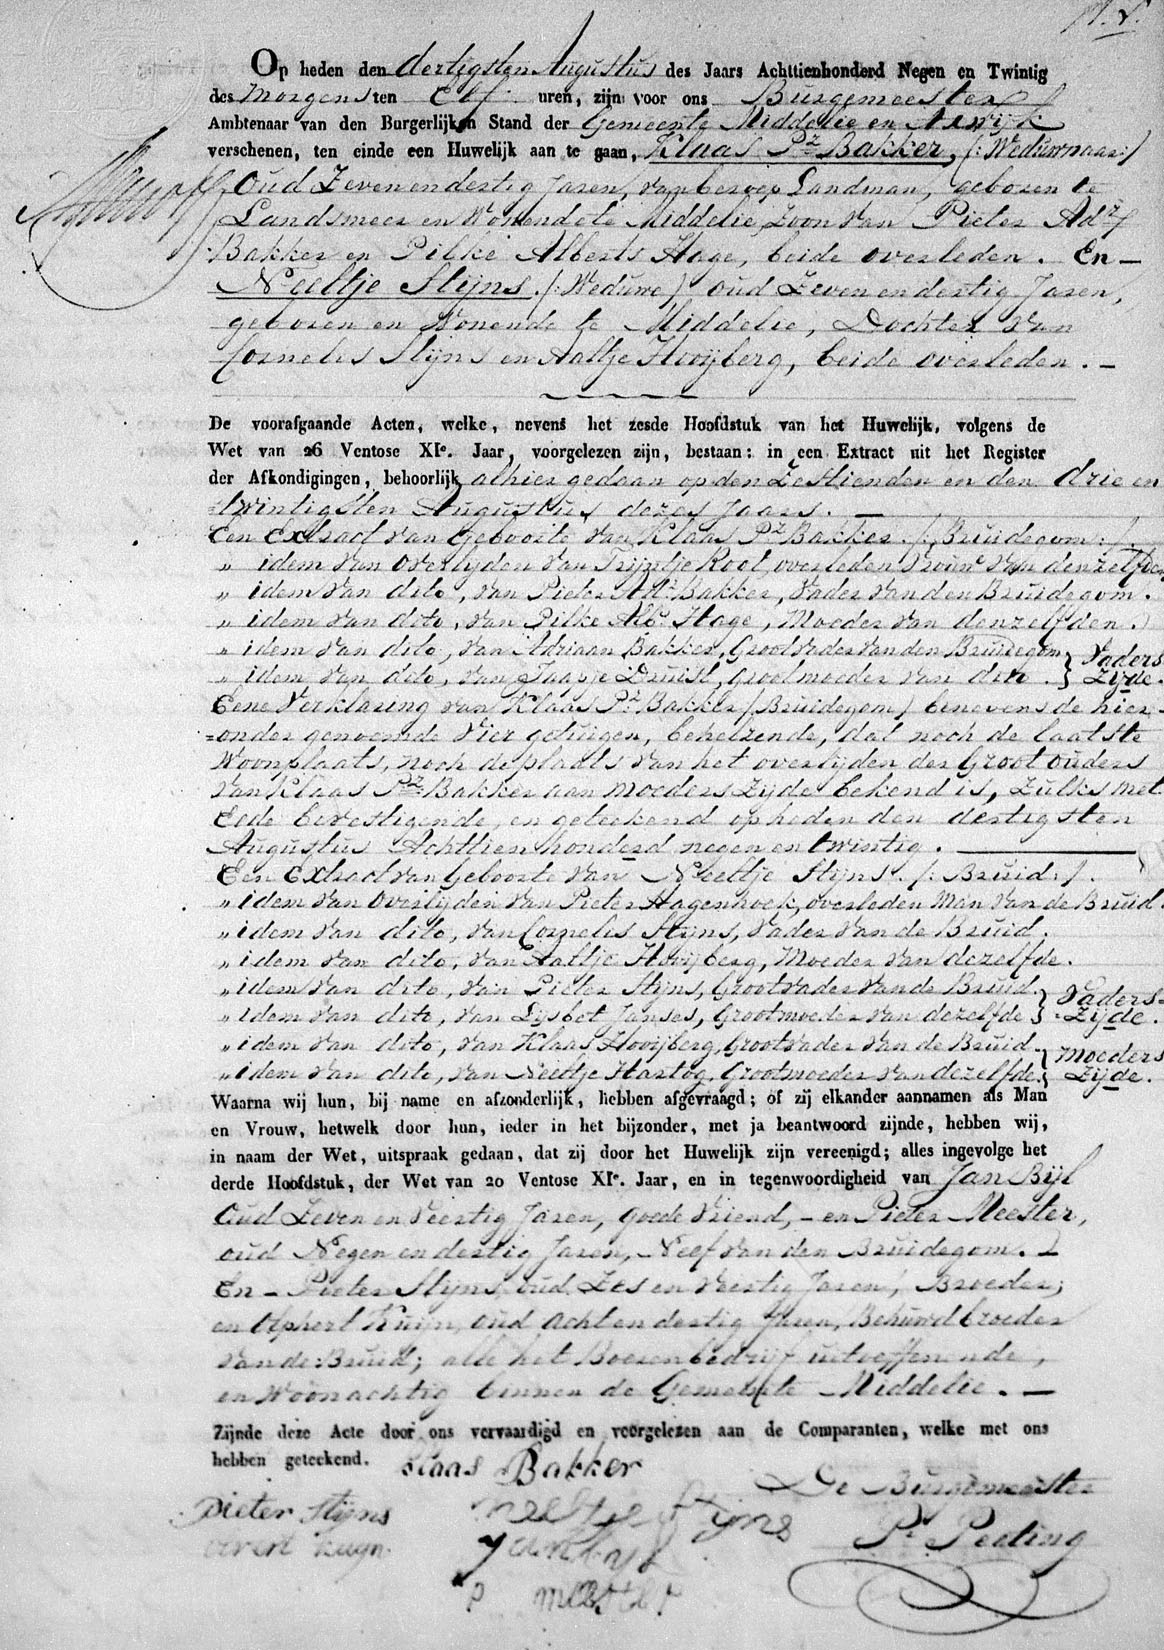 Op heden den dertigsten Augustus des Jaars Achttienhonderd Negen en Twintig
des Morgens ten Elf uren, zijn voor ons Burgemeester
Ambtenaar van den Burgerlijken Stand der Gemeente Middelie en Axwijk
verschenen, ten einde een Huwelijk aan te gaan, Klaas Pz Bakker, (: Weduwnaar :)
Oud Zeven en dertig Jaren, van beroep Landman, geboren te
Landsmeer en Wonende te Middelie, Zoon van Pieter Adrz
Bakker en Pilke Alberts Hage, beide overleden. En —
Neeltje Stijns. (: Weduwe) oud Zeven en dertig Jaren,
geboren en Wonende te Middelie, Dochter van
Cornelis Stijns en Aaltje Hooijberg, beide overleden. —
De voorafgaande Acten, welke, nevens het zesde Hoofdstuk van het Huwelijk, volgens de
Wet van 26 Ventose XIe. Jaar, voorgelezen zijn, bestaan: in een Extract uit het Register
der Afkondigingen, behoorlijk alhier gedaan op den Zestienden en den drie en
=twintigsten Augustus dezes Jaars. —
Een Extract van Geboorte van Klaas Pz Bakker. (: Bruidegom :).
„ idem van Overlyden van Trijntje Kool, overleden Vrouw van denzelfden
„ idem van dito, van Pieter Adr Bakker, Vader van den Bruidegom.
„ idem van dito, van Pilke Alb. Hage, Moeder van denzelfden.
„ idem van dito, van Adriaan Bakker, Grootvader van den Bruidegom } Vaders
„ idem van dito, van Jaapje Druist, Grootmoeder van dito. } Zijde.
Eene Verklaring van Klaas Pz Bakker (Bruidegom) benevens de hier-
=onder genoemde Vier getuigen, behelzende, dat noch de laatste
Woonplaats, noch de plaats van het overlijden der Grootouders
van Klaas Pz Bakker aan moeders Zijde bekend is, zulks met
Eede bevestigende, en geteekend op heden den dertigsten
Augustus Achttienhonderd negen en twintig. —
Een Extract van Geboorte van Neeltje Stijns. (: Bruid :).
„ idem van Overlyden van Pieter Hagenhoek, overleden Man van de Bruid.
„ idem van dito, van Cornelis Stijns, Vader van de Bruid.
„ idem van dito, van Aaltje Hooijberg, Moeder van dezelfde.
„ idem van dito, van Pieter Stijns, Grootvader van de Bruid. } Vaders-
„ idem van dito, van Lysbet Janses, Grootmoeder van dezelfde } =Zijde.
„ idem van dito, van Klaas Hooijberg, Grootvader van de Bruid. } Moeders
„ idem van dito, van Neeltje Hartog, Grootmoeder van dezelfde. } Zijde.
Waarna wij hun, bij name en afzonderlijk, hebben afgevraagd; of zij elkander aannamen als Man
en Vrouw, hetwelk door hun, ieder in het bijzonder, met ja beantwoord zijnde, hebben wij,
in naam der Wet, uitspraak gedaan, dat zij door het Huwelijk zijn vereenigd; alles ingevolge het
derde Hoofdstuk, der Wet van 20 Ventose XIe. Jaar, en in tegenwoordigheid van Jan Bijl
Oud Zeven en Veertig Jaren, goede Vriend, — en Pieter Meester,
oud Negen en dertig Jaren, Neef van den Bruidegom.
En — Pieter Stijns, oud Zes en Veertig Jaren, Broeder;
en Olphert Kuijn, oud Acht en dertig Jaren, Behuwdbroeder
van de Bruid; alle het Boerenbedrijf uitoeffenende,
en Woonachtig binnen de Gemeente Middelie. —
Zijnde deze Acte door ons vervaardigd en voorgelezen aan de Comparanten, welke met ons
hebben geteekend. Klaas Bakker
De Burgemeester
Pieter Stijns Neeltje Stijns
P. Peeting
Kuyn Jan Bijl
P Meester